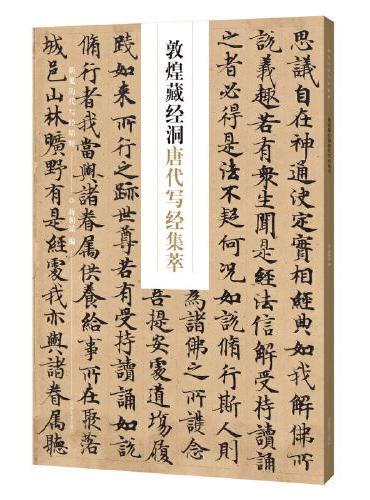 思議自在神通決定實相經典如我解佛所
說義趣若有衆生聞是經法信解受持讀誦
之者必得是法不疑何況如說脩行斯人則
為諸佛之所護念
菩提安處道場履
敦煌藏经洞唐代写经集萃
踐如來所行之跡世尊若有受持讀誦如說
脩行者我當與諸眷属供養給事所在聚落
城邑山林曠野有是經處我亦與諸眷属聽
敦煌藏经洞唐代写经集萃